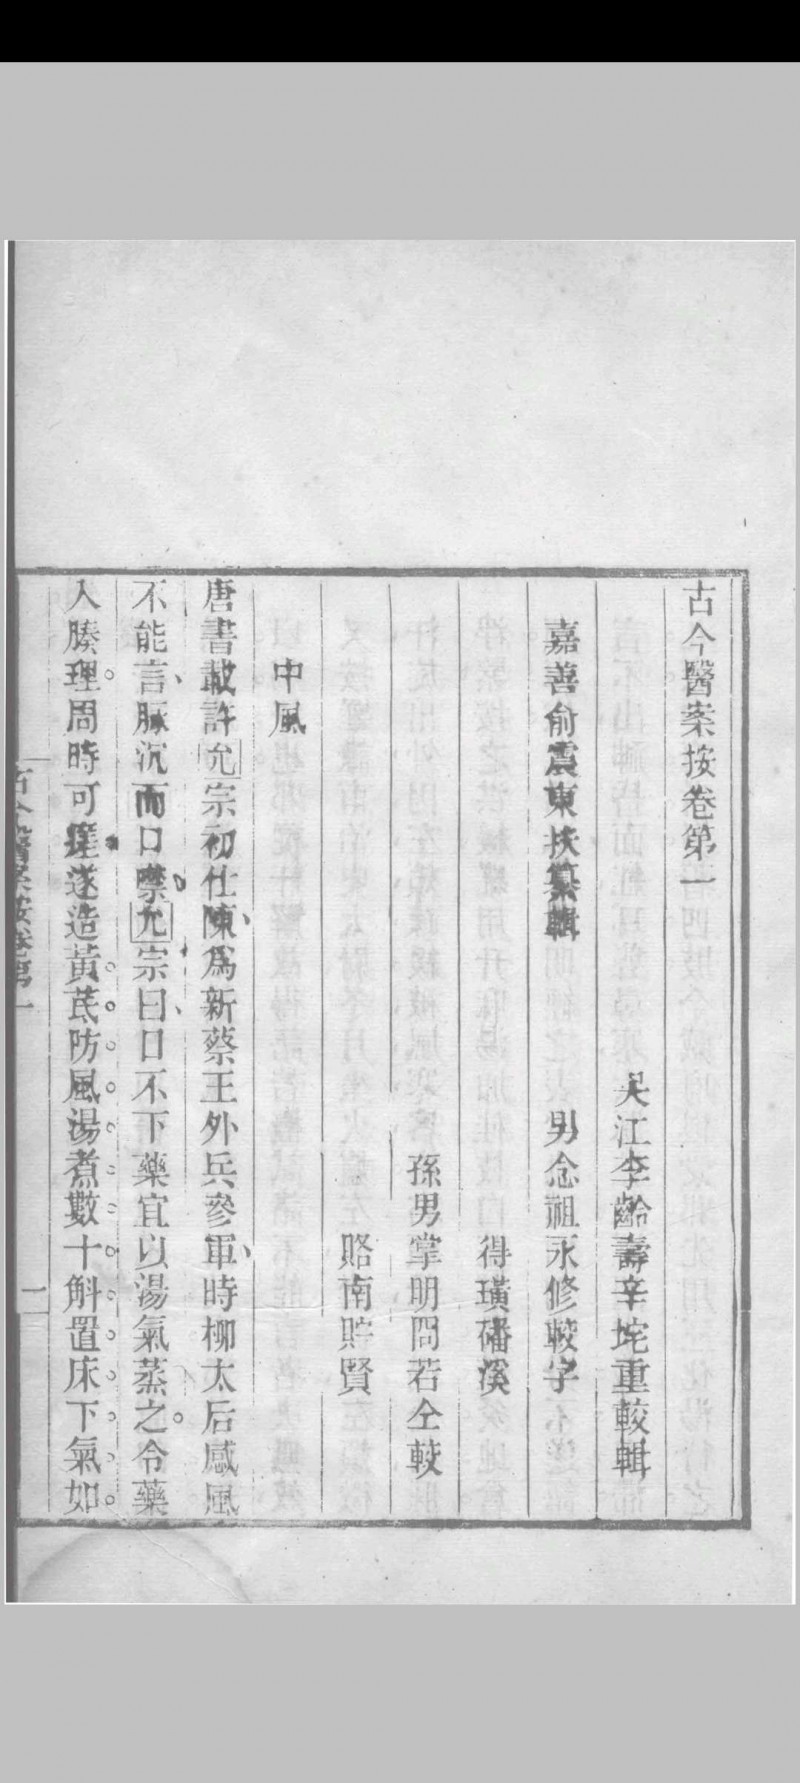 古今醫案按卷第一
吳江李齡壽辛垞重較輯
嘉善俞震東扶纂輯　男念祖永修較字
得璜磻溪
孫男掌明問若仝較
賂南貯賢
中風
唐書載許允宗初仕陳、爲新蔡王外兵參軍、時柳太后感風
不能言、脈沉而口噤、允宗曰、口不下藥宜以湯氣蒸之。令藥
入腠理。周時可瘥。遂造黃芪防風湯煮數十斛置床下氣如
古今醫案按卷第一
一